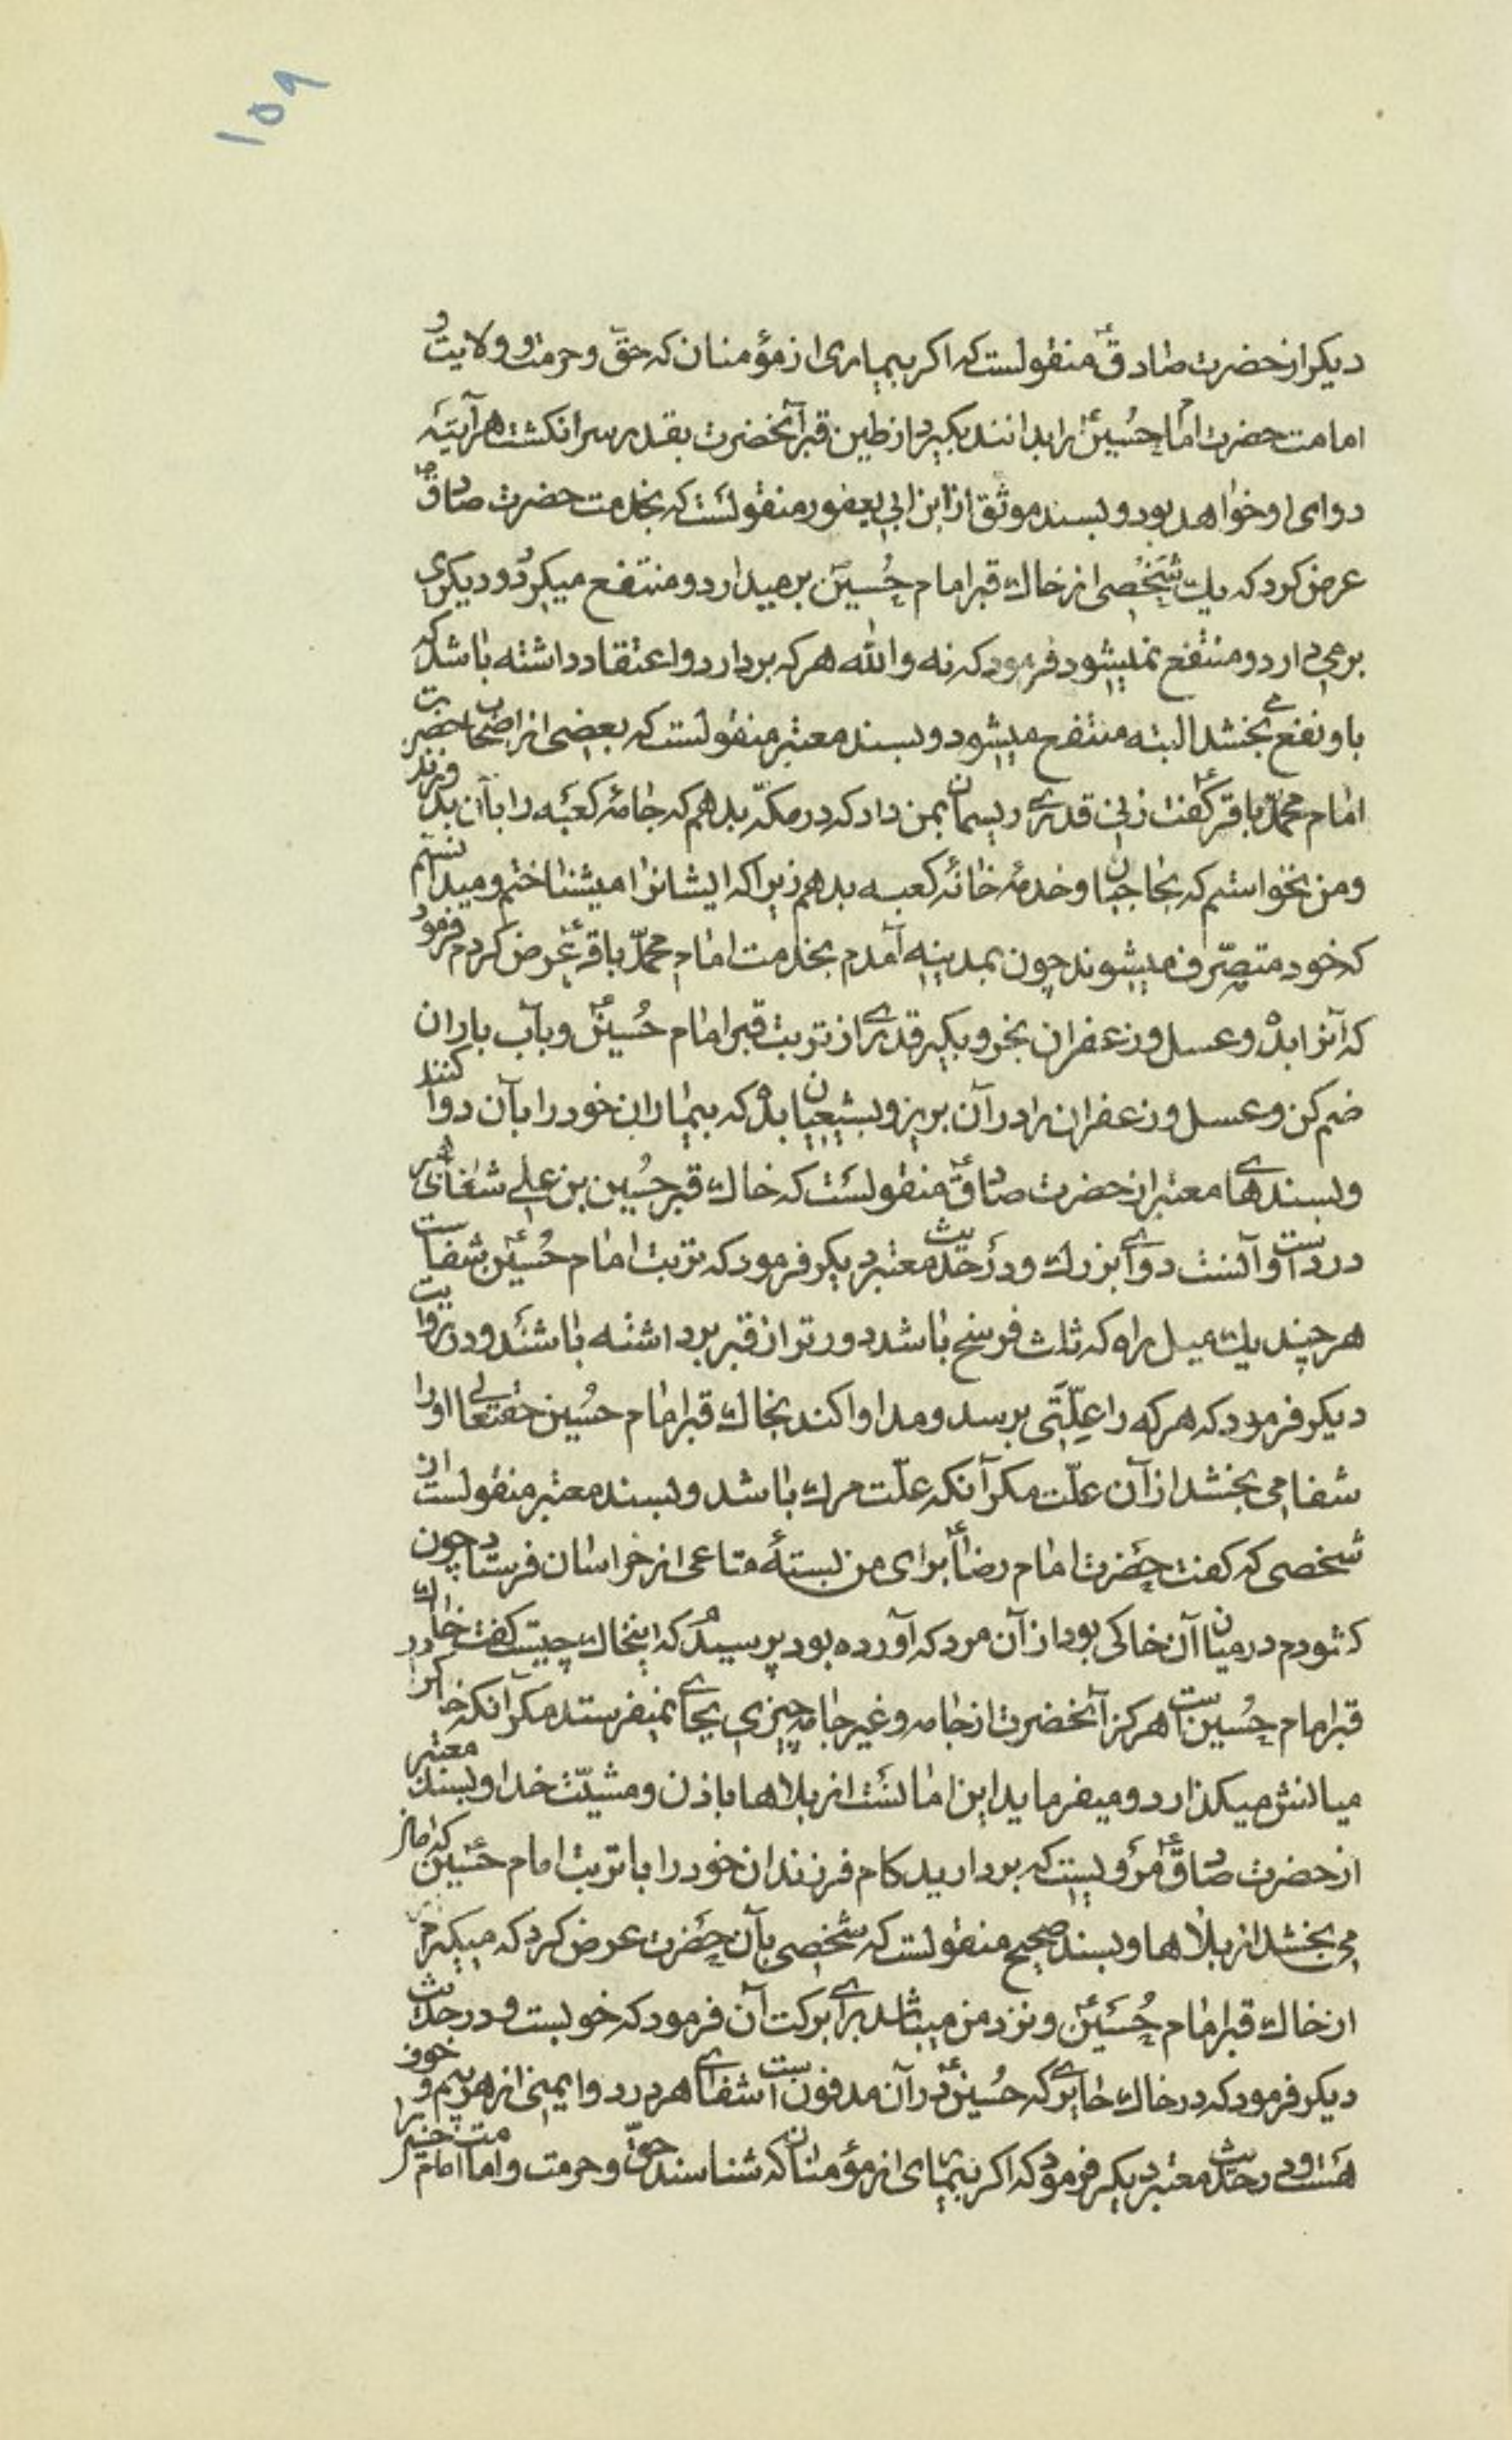 ۱۵۹
دیکر از حضرت صادق ع منقولست که اکر بیماری از مؤمنان که حق و حرمت و ولایت و
امامت حضرت امام حسین ع را بدانند بکیرد از طین قبر آنحضرت بقدر سر انکشت هرآینه
دوای او خواهد بود و بسند موثق از ابن ابی یعفور منقولست که بخدمت حضرت صادق ع
عرض کرد که یک شخصی از خاک قبر امام حسین برمیدارد و منتفع میکردد و دیکری
برمی دارد و منتفع نمیشود فرمود که نه والله هر که بردارد و اعتقاد داشته باشد که
باو نفع می بخشد البته منتفع میشود و بسند معتبر منقولست که بعضی از اصحاب حضرت
امام محمد باقر ع کفت زنی قدری ریسمان بمن داد که در مکه بدهم که جامه کعبه را بآن بدوزند
و من نخواستم که بحاجبان و خدمه خانه کعبه بدهم زیرا که ایشانرا میشناختم و میدانستم
که خود متصرف میشوند چون بمدینه آمدم بخدمت امام محمد باقر ع عرض کردم فرمود
که آنرا بده و عسل و زعفران بخر و بکیر قدری از تربت قبر امام حسین ع و بآب باران
ضم کن و عسل و زعفران را در آن بریز و بشیعیان بده که بیماران خود را بآن دوا کنند
و بسندهای معتبر از حضرت صادق ع منقولست که خاک قبر حسین بن علی شفای هر
دردیست و آنست دوای بزرک و در حدیث معتبر دیکر فرمود که تربت امام حسین ع شفاست
هر چند یک میل راه که ثلث فرسخ باشد دورتر از قبر برداشته باشند و در روایت
دیکر فرمود که هر که را علتی برسد و مداوا کند بخاک قبر امام حسین حقتعالی او را
شفا می بخشد از آن علت مکر آنکه علت مرک باشد و بسند معتبر منقولست از
شخصی که کفت حضرت امام رضا ع برای من بستهٔ متاعی از خراسان فرستاد چون
کشودم در میان آن خاکی بود از آن مرد که آورده بود پرسیدم که اینخاک چیست کفت خاک
قبر امام حسین است هرکز آنحضرت از جامه و غیر جامه چیزی بجای نمیفرستد مکر آنکه خاکرا در
میانش میکذارد و میفرماید این امانست از بلاها باذن و مشیت خدا و بسند معتبر
از حضرت صادق ع مرویست که بردارید کام فرزندان خود را با تربت امام حسین ع که امان
می بخشد از بلاها و بسند صحیح منقولست که شخصی بآن حضرت عرض کرد که میکیرم
از خاک قبر امام حسین ع و نزد من میباشد برای برکت آن فرمود که خوبست و در حدیث
دیکر فرمود که در خاک حایری که حسین ع در آن مدفونست شفای هر درد و ایمنی از هر بیم و خوف
هست و در حدیث معتبر دیکر فرمود که اکر بیماری از مؤمنان که شناسند حق و حرمت و امامت امام حسین را